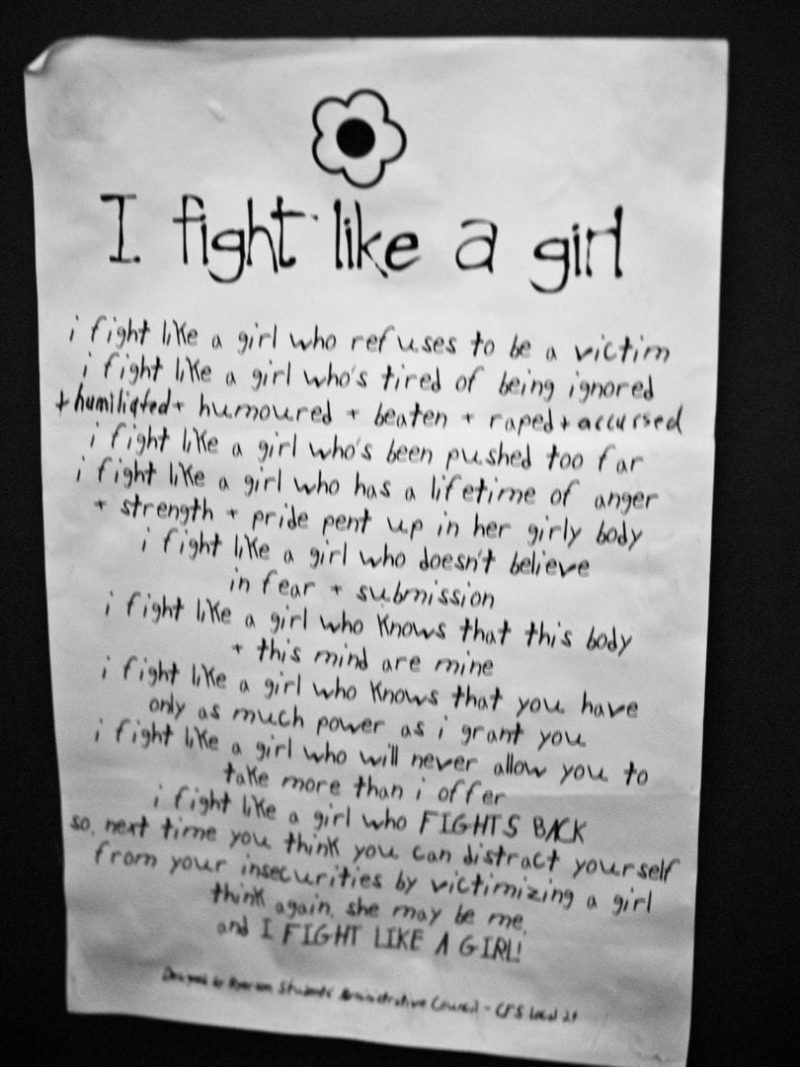 I fight like a girl
i fight like a girl who refuses to be a victim
i fight like a girl who's tired of being ignored
+ humiliated + humoured + beaten + raped + accursed
i fight like a girl who's been pushed too far
i fight like a girl who has a lifetime of anger
+ strength + pride pent up in her girly body
i fight like a girl who doesn't believe
in fear + submission
i fight like a girl who knows that this body
+ this mind are mine
i fight like a girl who knows that you have
only as much power as i grant you
i fight like a girl who will never allow you to
take more than i offer
i fight like a girl who FIGHTS BACK
so, next time you think you can distract yourself
from your insecurities by victimizing a girl
think again, she may be me,
and I FIGHT LIKE A GIRL!
Designed by Ryerson Students' Administrative Council - CFS Local 24